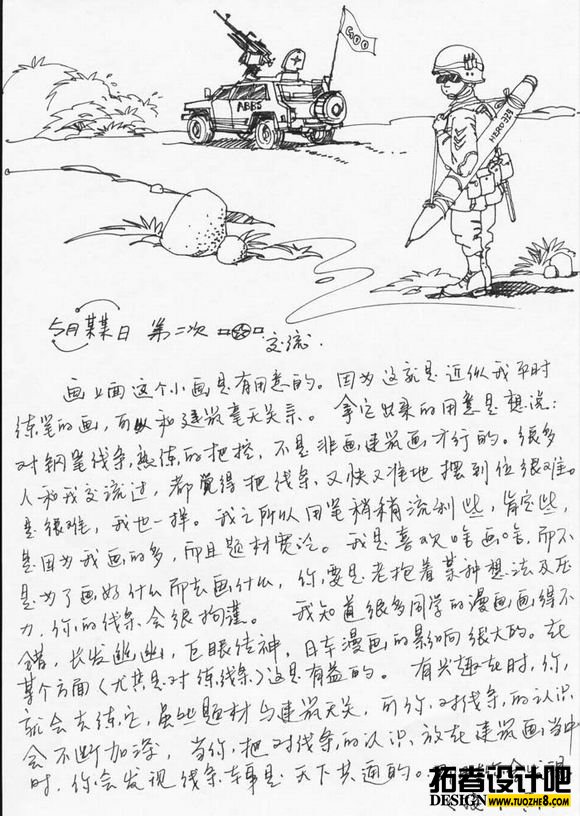 GOO
ABBS
HERO 329
5月某某日 第二次 交流.
画上面这个小画是有用意的。因为这就是近似我平时
练笔的画,可以和建筑毫无关系。拿它出来的用意是想说:
对钢笔线条,熟练的把控,不是非画建筑画才行的。很多
人和我交流过,都觉得把线条,又快又准地摆到位很难。
是很难,我也一样。我之所以用笔稍稍流利些,肯定些,
是因为我画的多,而且题材宽泛。我是喜欢啥画啥,而不
是为了画好什么而去画什么,你要是老抱着某种想法及压
力,你的线条会很拘谨。 我知道很多同学的漫画画得不
错,长发幽幽,巨眼传神,日本漫画的影响很大的。在
某个方面(尤其是对练线条)这是有益的。 有兴趣在时,你,
就会去练它,虽然题材与建筑无关,可你,对线条,的认识
会不断加深,当你,把对线条,的认识,放在建筑画当中
时,你会发现线条本事是天下共通的。
拓者设计吧
DESIGN WWW.TUOZHE8.COM